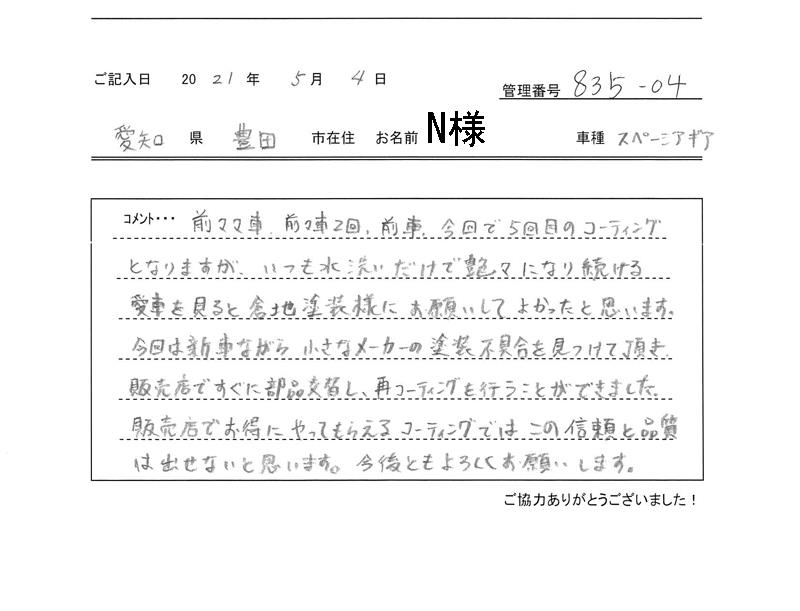 ご記入日 2021年 5月 4日
管理番号 835-04
愛知 県 豊田 市在住 お名前 N様 車種 スペーシアギア
コメント・・・ 前々々車、前々車2回、前車、今回で5回目のコーティング
となりますが、いつも水洗いだけで艶々になり続ける
愛車を見ると倉地塗装様にお願いしてよかったと思います。
今回は新車ながら小さなメーカーの塗装不具合を見つけて頂き、
販売店ですぐに部品交替し、再コーティングを行うことができました。
販売店でお得にやってもらえるコーティングではこの信頼と品質
は出せないと思います。今後ともよろしくお願いします。
ご協力ありがとうございました！